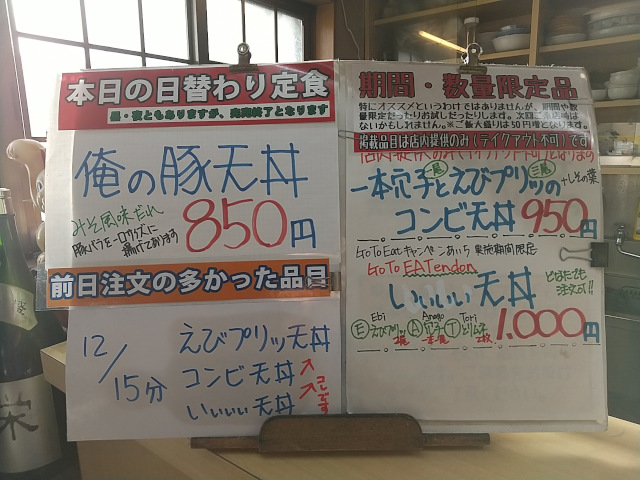 本日の日替わり定食
昼・夜ともありますが、売完終了となります
俺の豚天丼
みそ風味だれ
豚バラを一口サイズに
揚げております
850円
前日注文の多かった品目
12/15分
えびプリッ天丼
コンビ天丼
いいいい天丼
コレです
期間・数量限定品
特にオススメというわけではありませんが、期間や数
量限定だったりお試しだったりします。次回ご来店時は
ないかもしれません。※ご飯大盛りは50円増となります。
掲載品目は店内提供のみ(テイクアウト不可)です
一本穴子とえびプリッの
一尾
三尾
+しその葉
コンビ天丼 950円
Go To Eatキャンペーンあいち 実施期間限定
Go To EATendon
いいいい天丼
どなたでも
注文可!!
Ebi Anago Tori
Ⓔえびプリッ2尾 Ⓐ穴子一本 Ⓣとりムネ2枚
1.000円